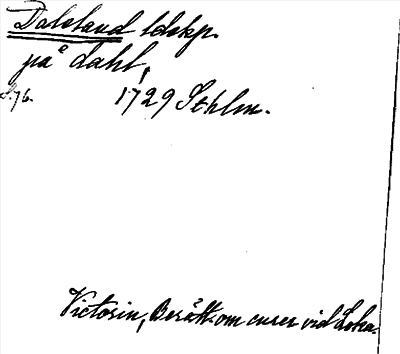 Dalsland ldskp.
på dahl,
S. 76. 1729 Sthlm.
Victorin, Berätt. om curer vid Loka.